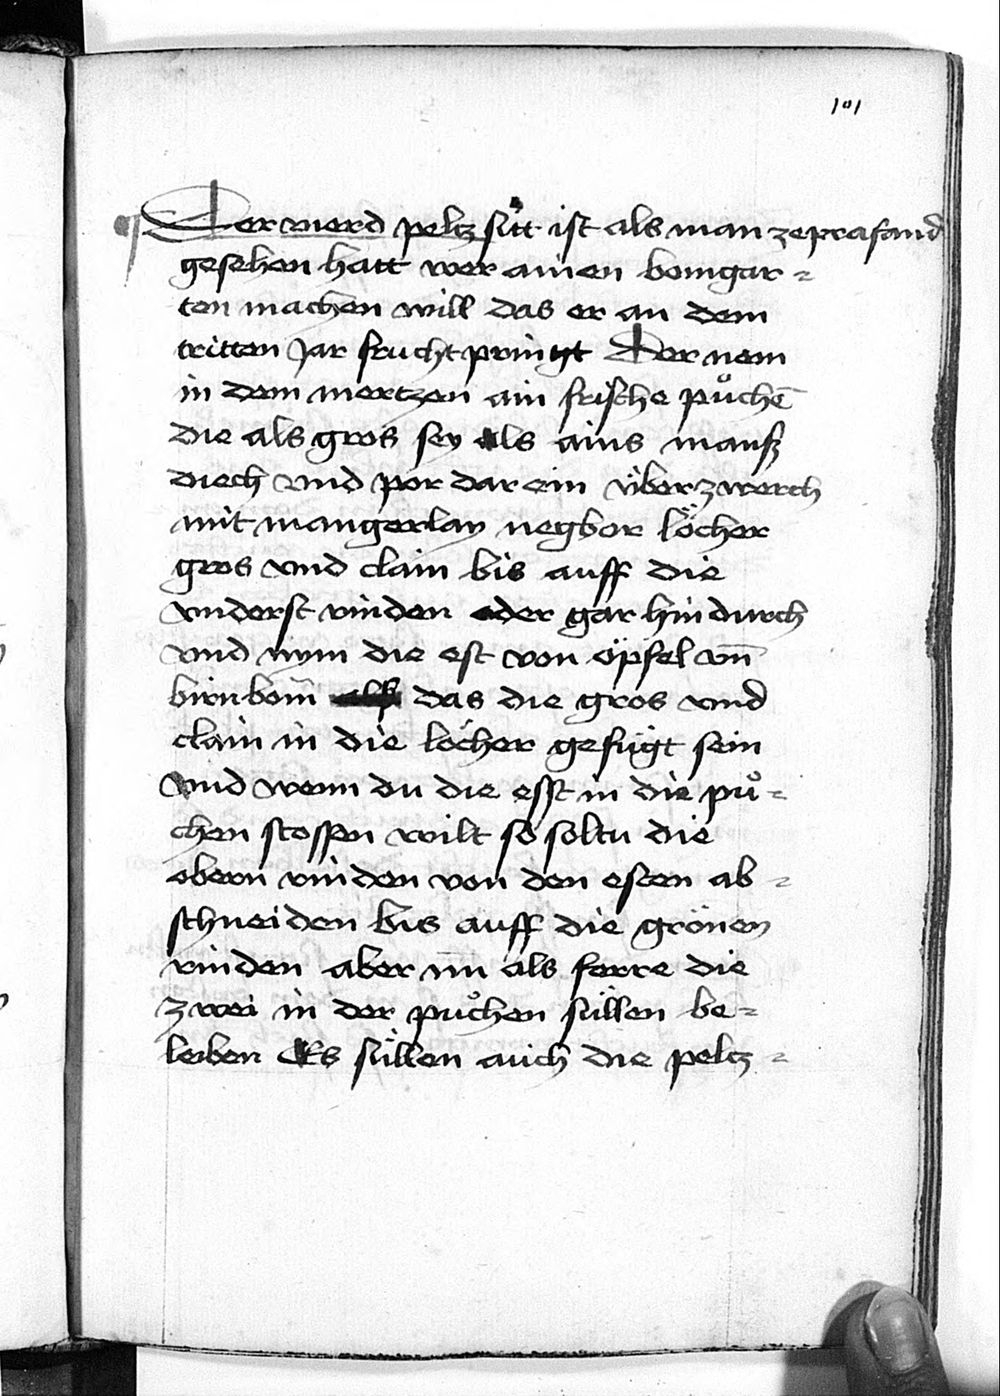 101
¶ Der vierd peltz sitt ist als man ze prafand
gesehen hatt wer ainen bomgar=
ten machen will das er an dem
tritten Jar frucht pringt Der nem
in dem mertzen ain frische půchē
die als gros sey als ains manß
diech vnd por dar ein v̈ber zwerch
mit mangerlay negbor löcher
gros vnd clain bis auff die
vnderst rinden oder gar hin durch
vnd nym die est von öpfel vn̄
birnbom̄ das die gros vnd
clain in die löcher gefügt sein
Vnd wenn du die esst in die pů=
chen stossen wilt so soltu die
obern rinden von den esten ab=
schneiden bis auff die grönen
rinden aber nūn als ferre die
zwei in der půchen süllen be=
leiben Es süllen auch die peltz=